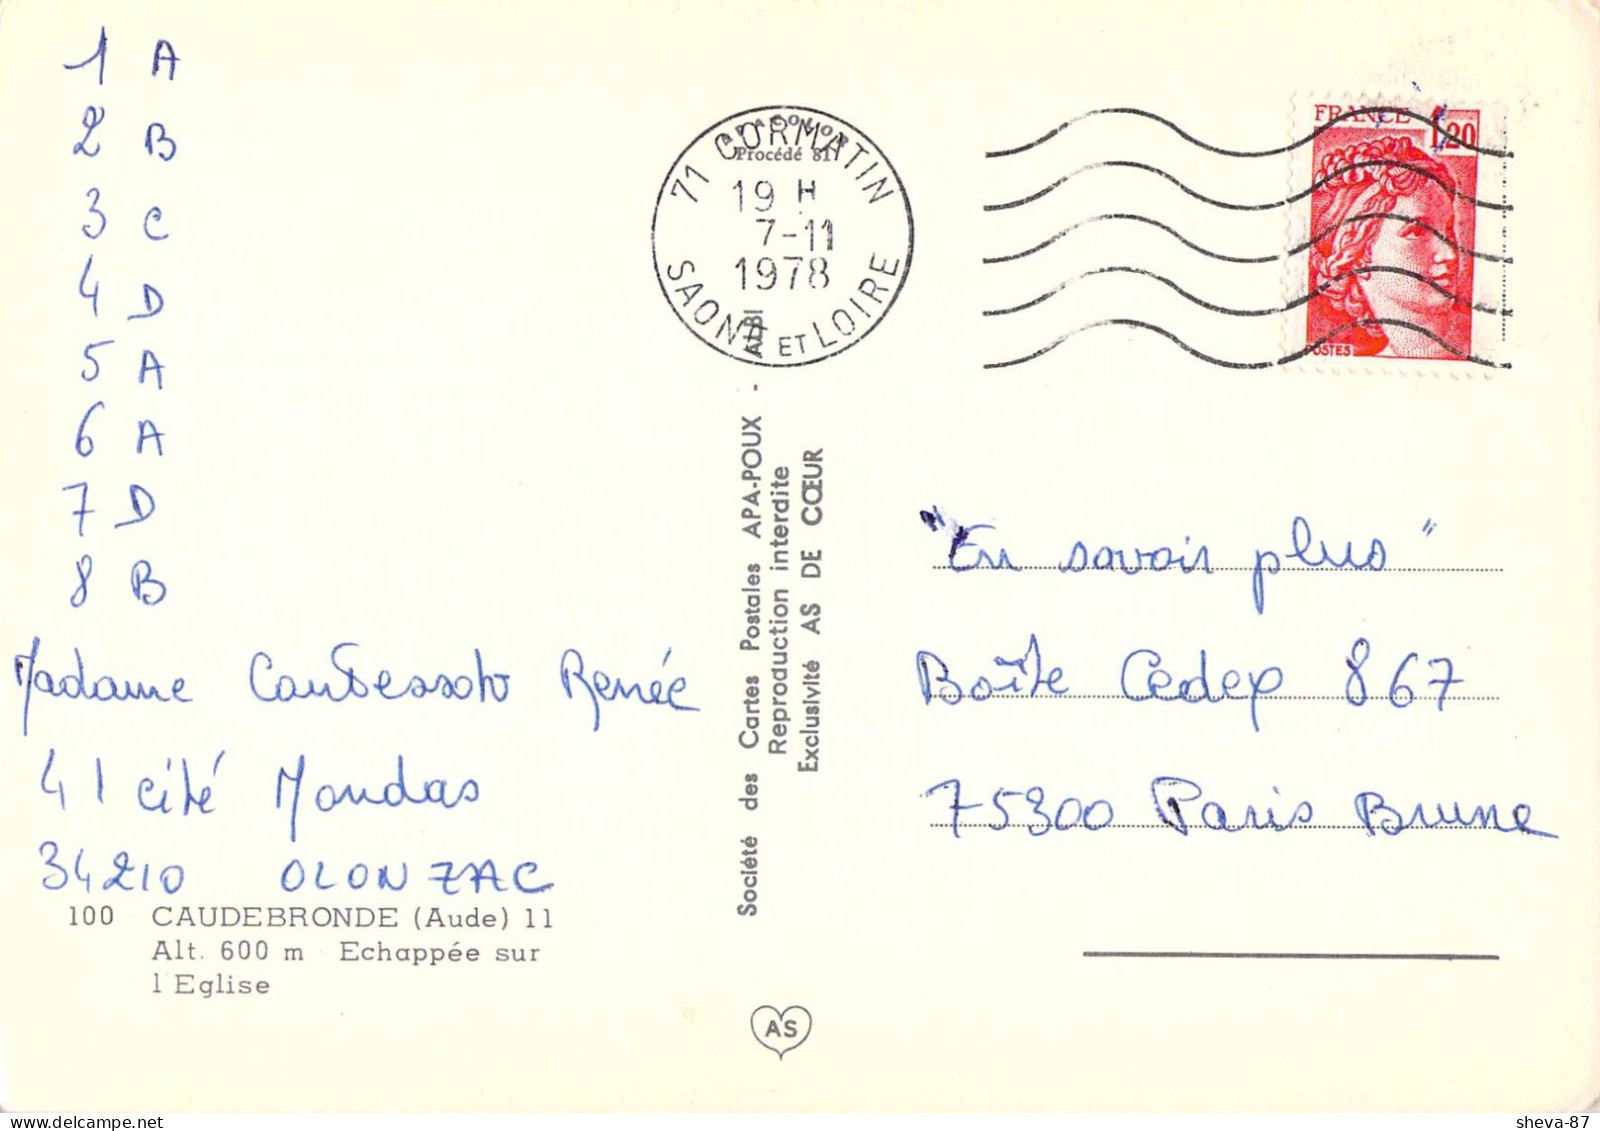 1 A
2 B
3 C
4 D
5 A
6 A
7 D
8 B
Madame Renée
41 cité Mondas
34210 OLONZAC
100 CAUDEBRONDE (Aude) 11
Alt. 600 m Echappée sur
l'Eglise
Société des Cartes Postales APA-POUX - ALBI
Reproduction interdite
Exclusivité AS DE CŒUR
APACOLOR
Procédé 817
71 CORMATIN
19 H
7-11
1978
SAONE ET LOIRE
AS
FRANCE 1,20
POSTES
"En savoir plus"
Boîte Cedex 867
75300 Paris Brune
sheva-87